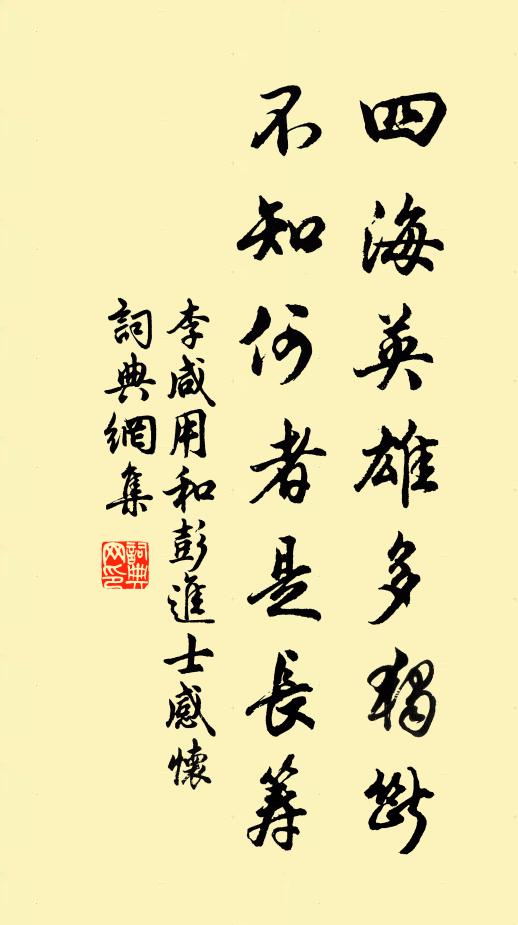 四海英雄多獨斷
不知何者是長筭
李咸用和彭進士感懷
詞典網集
詞典網印